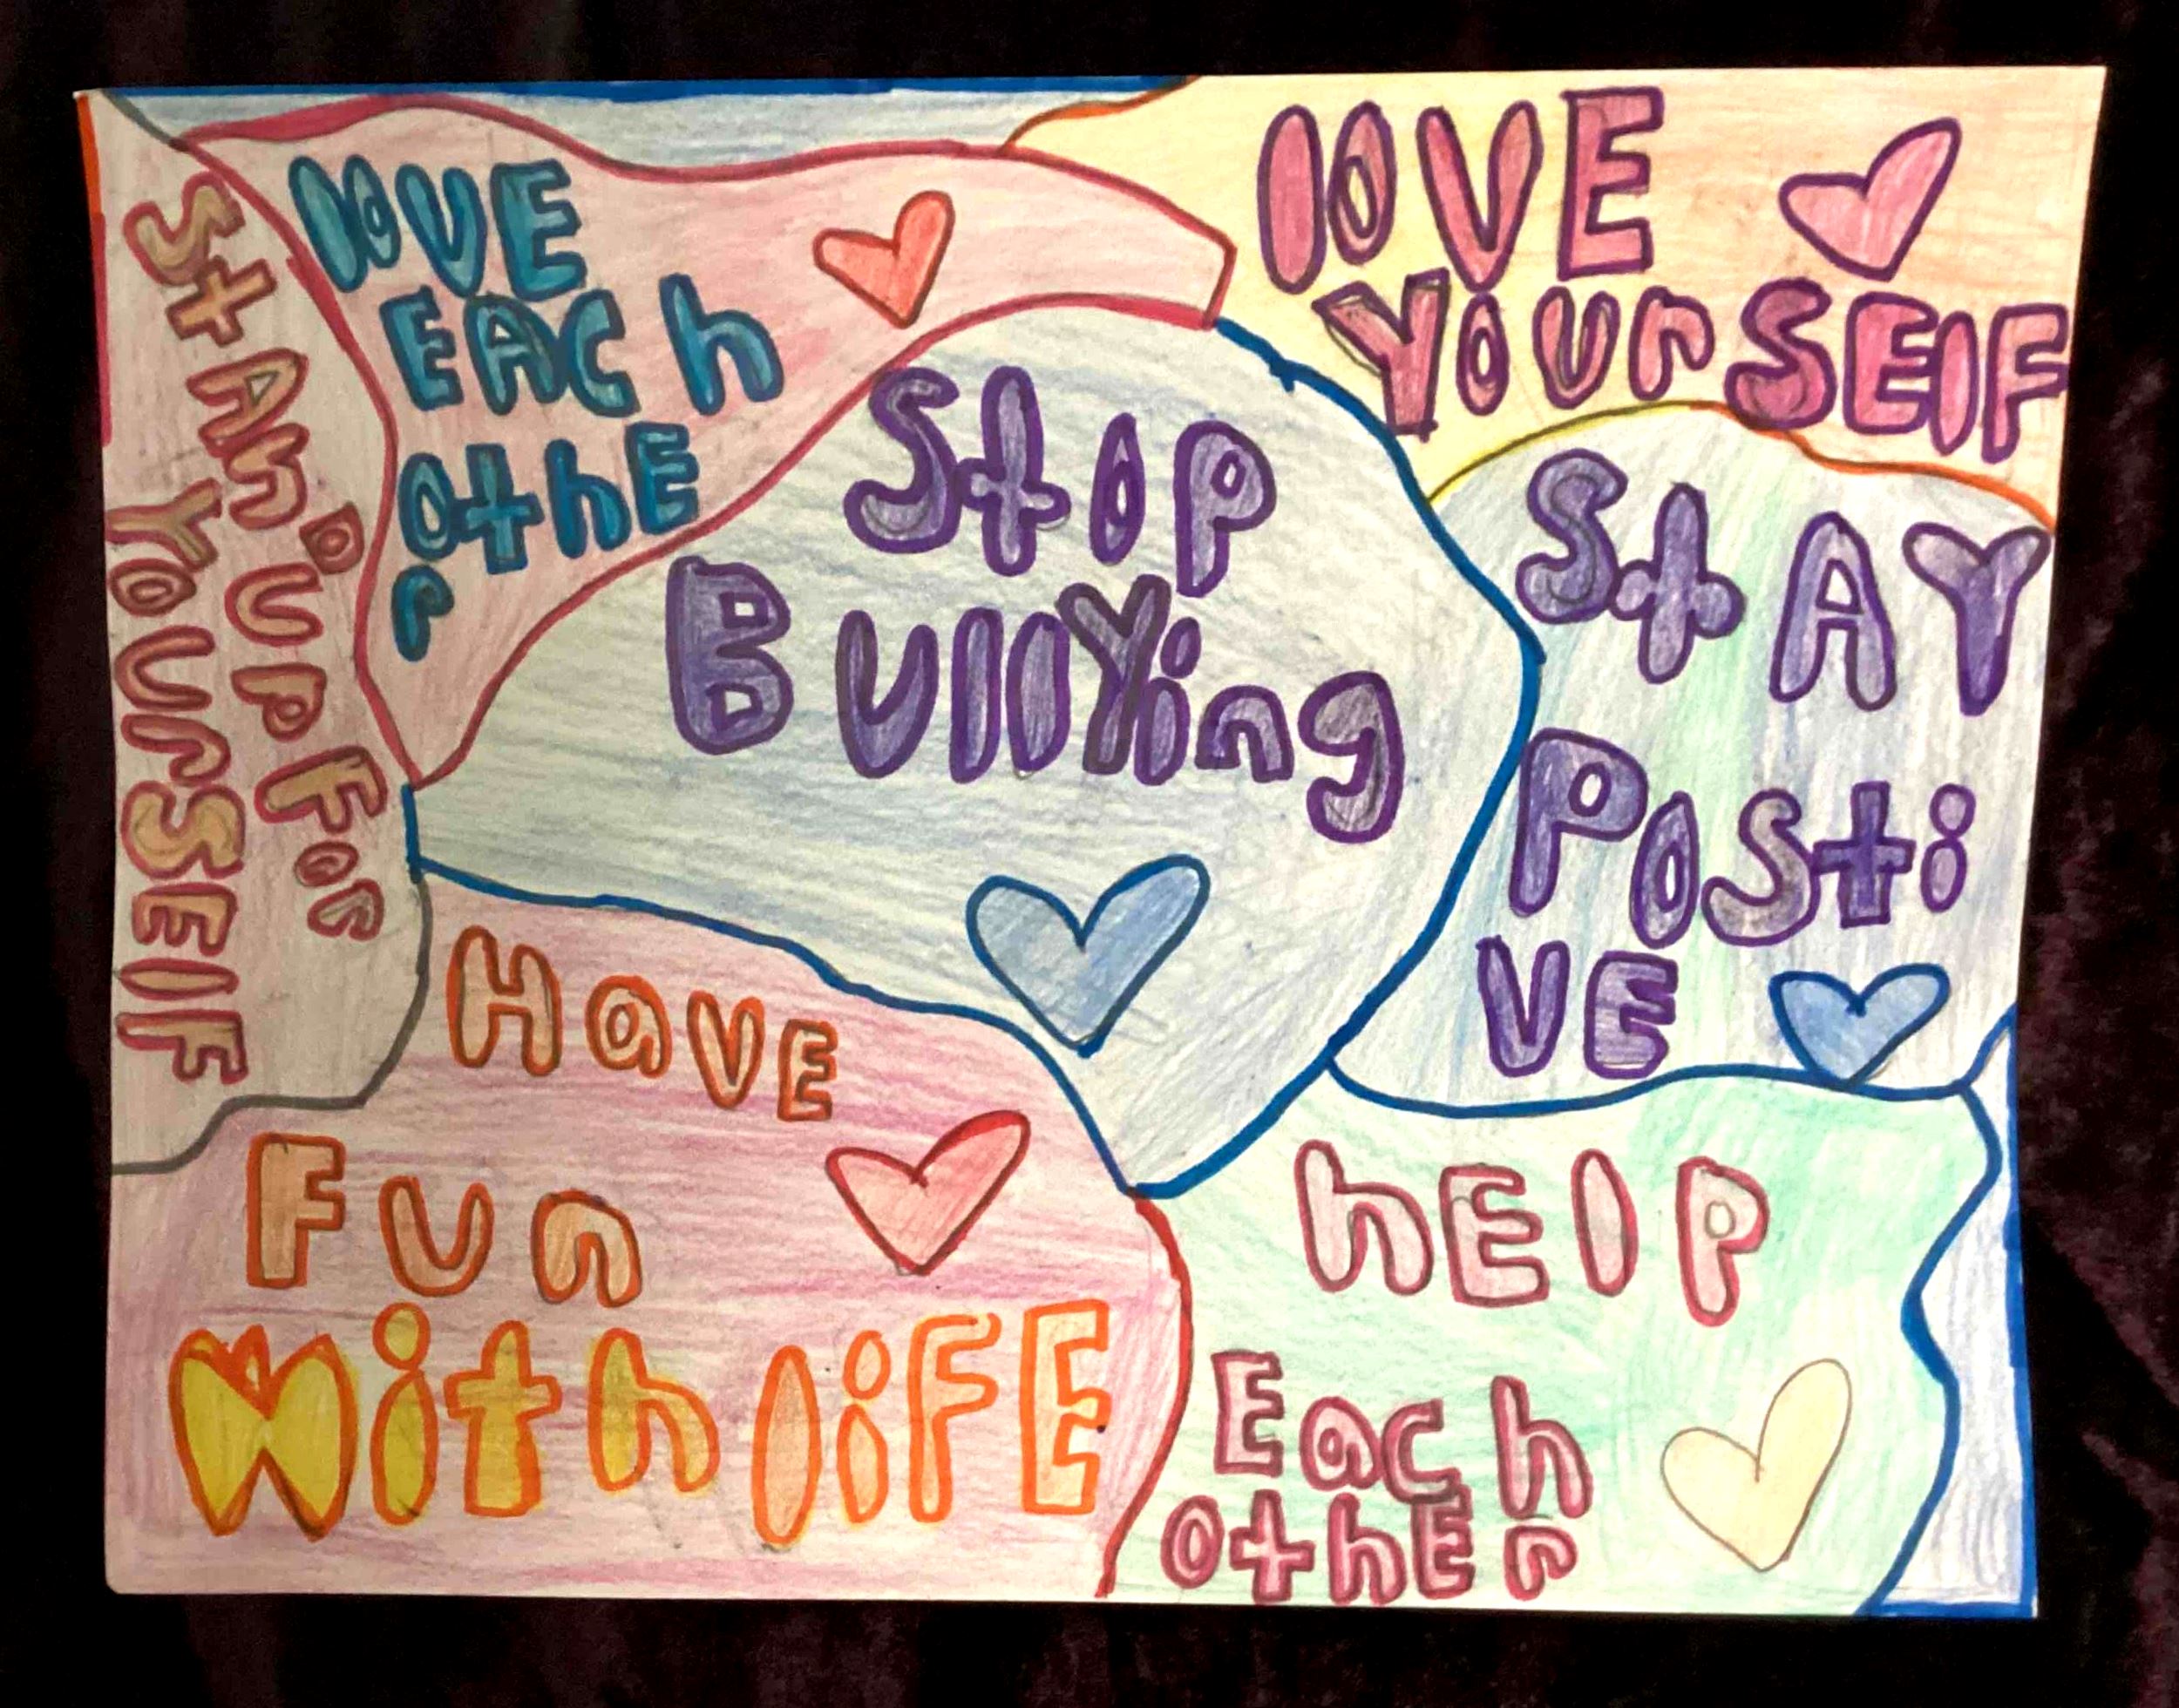 StAnD UP For
YourSElF
lOVE
EACh
othE
r
lOVE
YourSElF
StoP
BullYing
StAY
PoSti
VE
HaVE
Fun
With liFE
hElP
Each
othEr